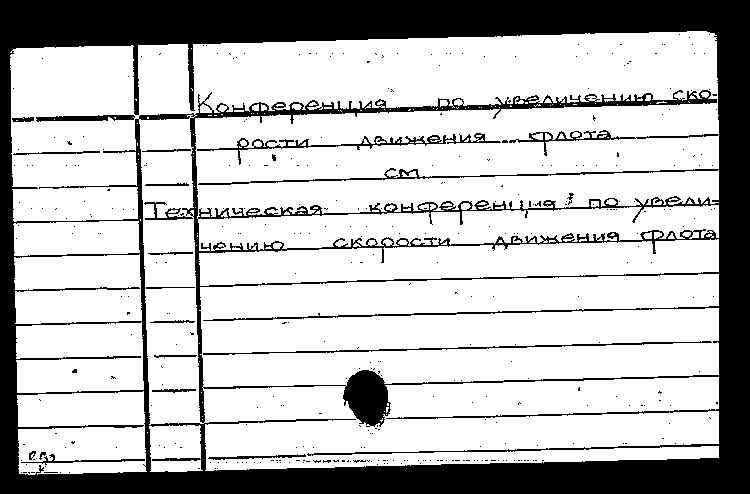 Конференция по увеличению ско-
рости движения флота
см.
Техническая конференция по увели-
чению скорости движения флота